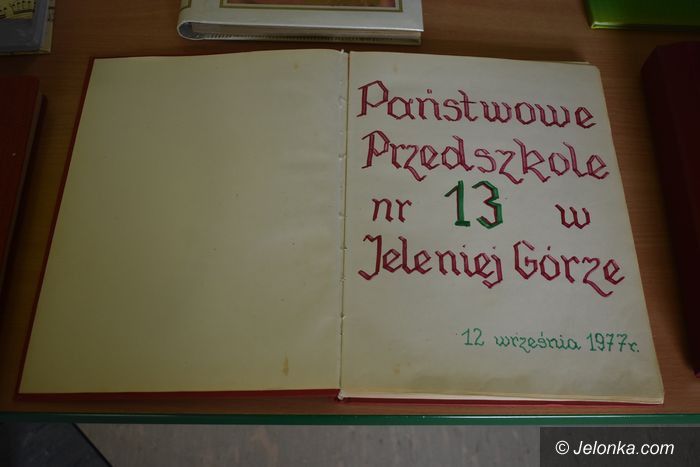 Państwowe
Przedszkole
nr 13 w
Jeleniej Górze
12 września 1977r.
© Jelonka.com